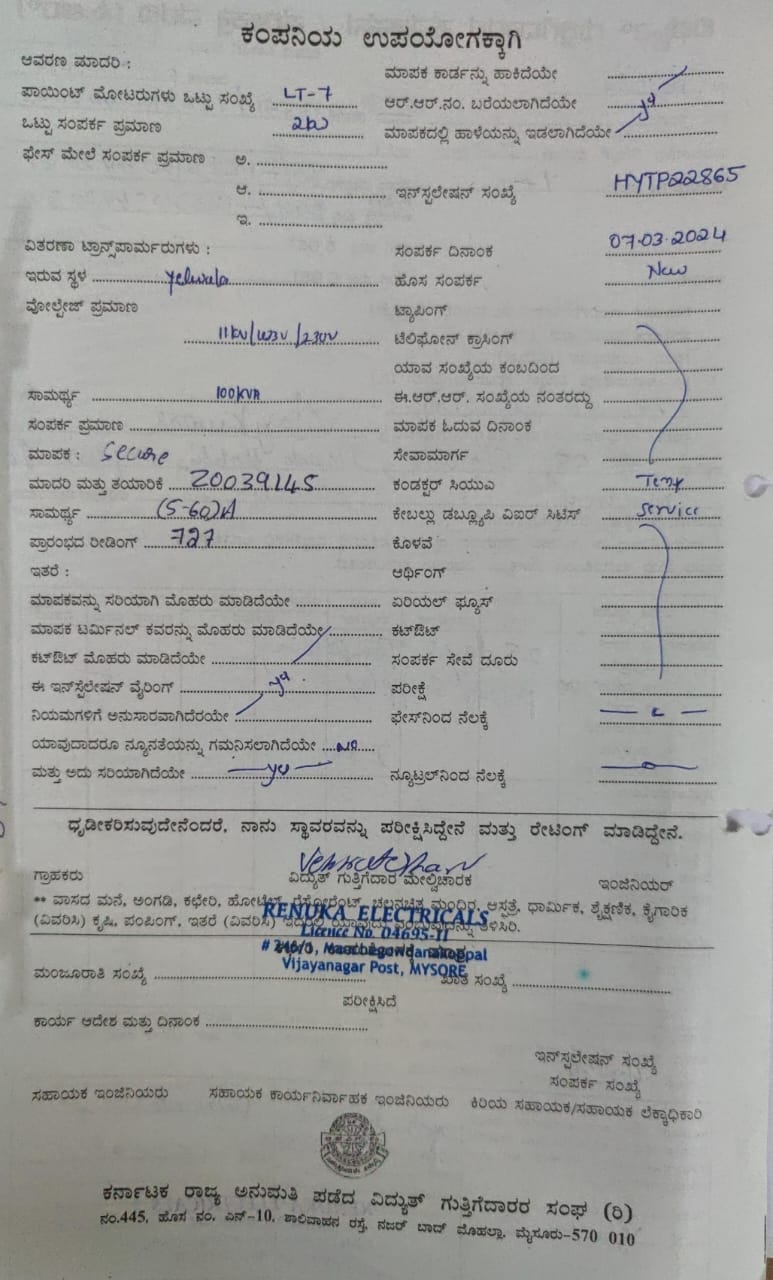 ಕಂಪನಿಯ ಉಪಯೋಗಕ್ಕಾಗಿ
ಆವರಣ ಮಾದರಿ :
ಮಾಪಕ ಕಾರ್ಡನ್ನು ಹಾಕಿದೆಯೇ
ಪಾಯಿಂಟ್ ಮೋಟರುಗಳು ಒಟ್ಟು ಸಂಖ್ಯೆ LT-7
ಆರ್.ಆರ್.ನಂ. ಬರೆಯಲಾಗಿದೆಯೇ
ಒಟ್ಟು ಸಂಪರ್ಕ ಪ್ರಮಾಣ
ಮಾಪಕದಲ್ಲಿ ಹಾಳೆಯನ್ನು ಇಡಲಾಗಿದೆಯೇ
ಫೇಸ್ ಮೇಲೆ ಸಂಪರ್ಕ ಪ್ರಮಾಣ ಅ.
ಆ.
ಇನ್‌ಸ್ಟಲೇಷನ್ ಸಂಖ್ಯೆ HYTP22865
ಇ.
ವಿತರಣಾ ಟ್ರಾನ್ಸ್‌ಫಾರ್ಮರುಗಳು :
ಸಂಪರ್ಕ ದಿನಾಂಕ 07.03.2024
ಇರುವ ಸ್ಥಳ Yelwala
ಹೊಸ ಸಂಪರ್ಕ New
ವೋಲ್ಟೇಜ್ ಪ್ರಮಾಣ
ಟ್ಯಾಪಿಂಗ್
ಟೆಲಿಫೋನ್ ಕ್ರಾಸಿಂಗ್
ಯಾವ ಸಂಖ್ಯೆಯ ಕಂಬದಿಂದ
ಸಾಮರ್ಥ್ಯ 100KVA
ಈ.ಆರ್.ಆರ್. ಸಂಖ್ಯೆಯ ನಂತರದ್ದು
ಸಂಪರ್ಕ ಪ್ರಮಾಣ
ಮಾಪಕ ಓದುವ ದಿನಾಂಕ
ಮಾಪಕ : Secure
ಸೇವಾಮಾರ್ಗ
ಮಾದರಿ ಮತ್ತು ತಯಾರಿಕೆ 20039145
ಕಂಡಕ್ಟರ್ ಸಿಯುಎ Temp
ಸಾಮರ್ಥ್ಯ (5-60)A
ಕೇಬಲ್ಲು ಡಬ್ಲ್ಯೂಪಿ ವಿಐರ್ ಸಿಟಿಸ್ service
ಪ್ರಾರಂಭದ ರೀಡಿಂಗ್ 727
ಕೊಳವೆ
ಇತರೆ :
ಆರ್ಥಿಂಗ್
ಮಾಪಕವನ್ನು ಸರಿಯಾಗಿ ಮೊಹರು ಮಾಡಿದೆಯೇ
ಏರಿಯಲ್ ಫ್ಯೂಸ್
ಮಾಪಕ ಟರ್ಮಿನಲ್ ಕವರನ್ನು ಮೊಹರು ಮಾಡಿದೆಯೇ
ಕಟ್‌ಔಟ್
ಕಟ್‌ಔಟ್ ಮೊಹರು ಮಾಡಿದೆಯೇ
ಸಂಪರ್ಕ ಸೇವೆ ದೂರು
ಈ ಇನ್‌ಸ್ಟೆಲೇಷನ್ ವೈರಿಂಗ್
ಪರೀಕ್ಷೆ
ನಿಯಮಗಳಿಗೆ ಅನುಸಾರವಾಗಿದೆರಯೇ
ಫೇಸ್‌ನಿಂದ ನೆಲಕ್ಕೆ
ಯಾವುದಾದರೂ ನ್ಯೂನತೆಯನ್ನು ಗಮನಿಸಲಾಗಿದೆಯೇ no
ಮತ್ತು ಅದು ಸರಿಯಾಗಿದೆಯೇ
ನ್ಯೂಟ್ರಲ್‌ನಿಂದ ನೆಲಕ್ಕೆ
ಧೃಡೀಕರಿಸುವುದೇನೆಂದರೆ, ನಾನು ಸ್ಥಾವರವನ್ನು ಪರೀಕ್ಷಿಸಿದ್ದೇನೆ ಮತ್ತು ರೇಟಿಂಗ್ ಮಾಡಿದ್ದೇನೆ.
Venkateshan
ಗ್ರಾಹಕರು ವಿದ್ಯುತ್ ಗುತ್ತಿಗೆದಾರ ಮೇಲ್ವಿಚಾರಕ ಇಂಜಿನಿಯರ್
** ವಾಸದ ಮನೆ, ಅಂಗಡಿ, ಕಛೇರಿ, ಹೋಟೆಲ್, ರೆಸ್ಟೋರೆಂಟ್, ಚಲನಚಿತ್ರ ಮಂದಿರ, ಆಸ್ಪತ್ರೆ, ಧಾರ್ಮಿಕ, ಶೈಕ್ಷಣಿಕ, ಕೈಗಾರಿಕ
RENUKA ELECTRICALS
(ವಿವರಿಸಿ) ಕೃಷಿ, ಪಂಪಿಂಗ್, ಇತರೆ (ವಿವರಿಸಿ) ಇದರಲ್ಲಿ ಯಾವುದು ತಿಳಿಸಿರಿ.
Licence No. 04695-II
# 246/1, Manchegowdanakoppal
Vijayanagar Post, MYSORE
ಮಂಜೂರಾತಿ ಸಂಖ್ಯೆ ಖಾತೆ ಸಂಖ್ಯೆ
ಪರೀಕ್ಷಿಸಿದೆ
ಕಾರ್ಯ ಆದೇಶ ಮತ್ತು ದಿನಾಂಕ
ಇನ್‌ಸ್ಟಲೇಷನ್ ಸಂಖ್ಯೆ
ಸಂಪರ್ಕ ಸಂಖ್ಯೆ
ಸಹಾಯಕ ಇಂಜಿನಿಯರು ಸಹಾಯಕ ಕಾರ್ಯನಿರ್ವಾಹಕ ಇಂಜಿನಿಯರು ಕಿರಿಯ ಸಹಾಯಕ/ಸಹಾಯಕ ಲೆಕ್ಕಾಧಿಕಾರಿ
ಕರ್ನಾಟಕ ರಾಜ್ಯ ಅನುಮತಿ ಪಡೆದ ವಿದ್ಯುತ್ ಗುತ್ತಿಗೆದಾರರ ಸಂಘ (ರಿ)
ನಂ.445, ಹೊಸ ನಂ. ಎನ್-10, ಶಾಲಿವಾಹನ ರಸ್ತೆ, ನಜರ್ ಬಾದ್ ಮೊಹಲ್ಲಾ, ಮೈಸೂರು-570 010